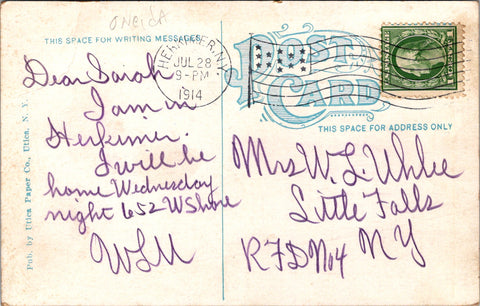 ONEIDA
THIS SPACE FOR WRITING MESSAGES
HERKIMER, N.Y.
JUL 28
9-PM
1914
POST CARD
THIS SPACE FOR ADDRESS ONLY
Pub. by Utica Paper Co., Utica, N. Y.
Dear Sarah
I am in
Herkimer.
I will be
home Wednesday
night 652 W Shore
WLU
Mrs W. L. Uhle
Little Falls
RFD No 4 NY